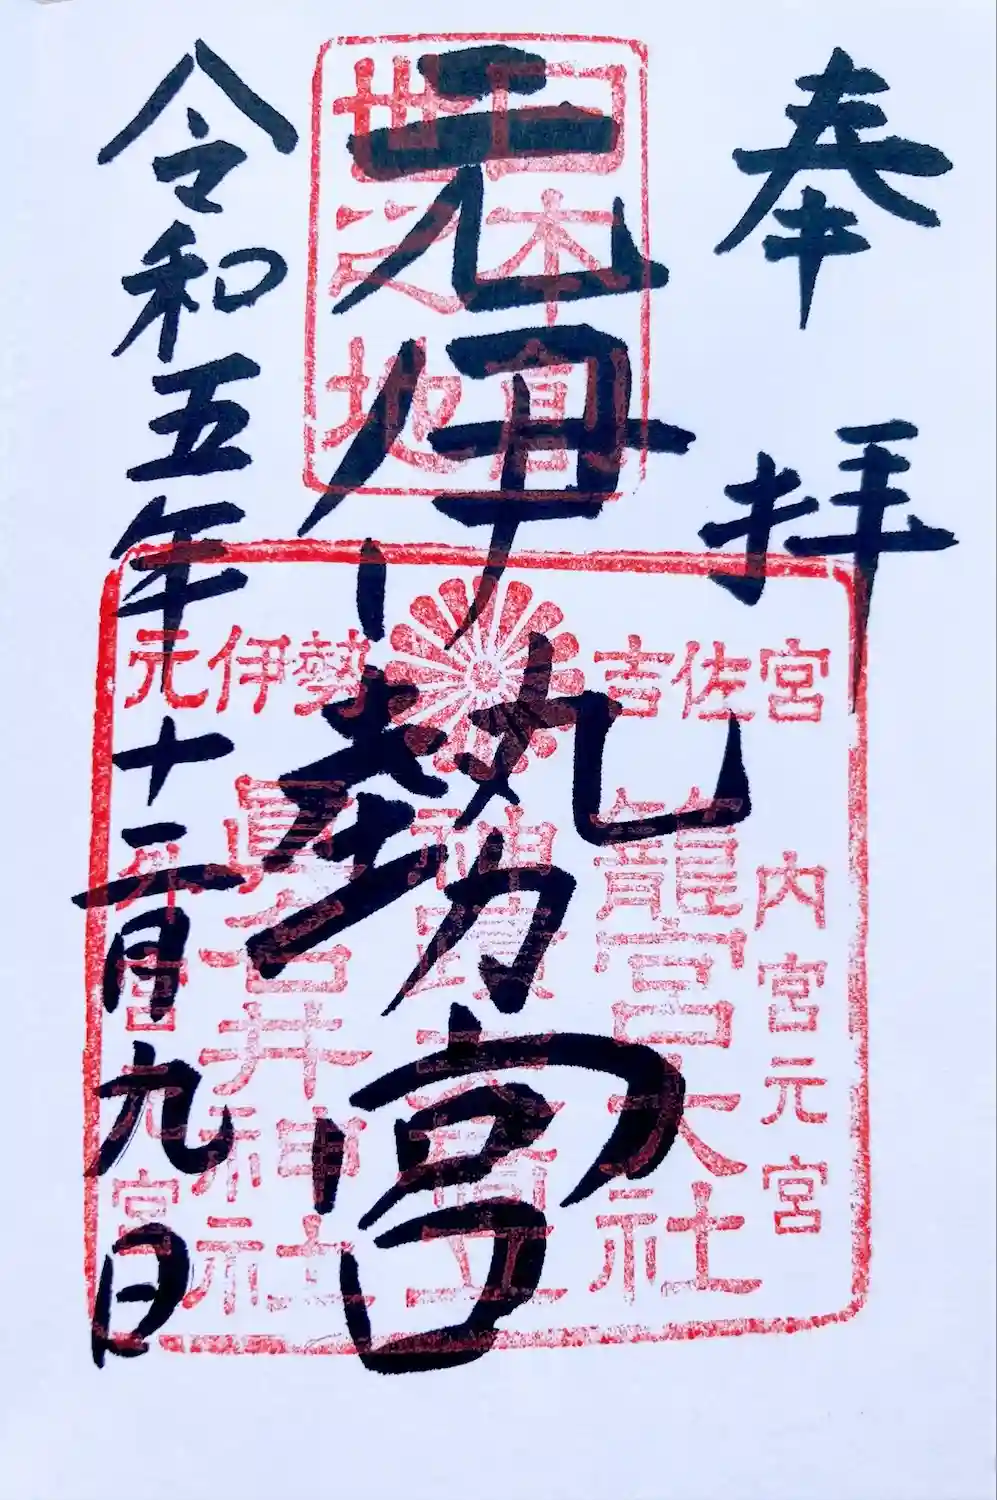 奉拝
元伊勢宮
令和五年十二月九日
世之地
元伊勢 吉佐宮
内宮元宮
籠宮大社
神蹟天橋立
眞名井神社
外宮元宮